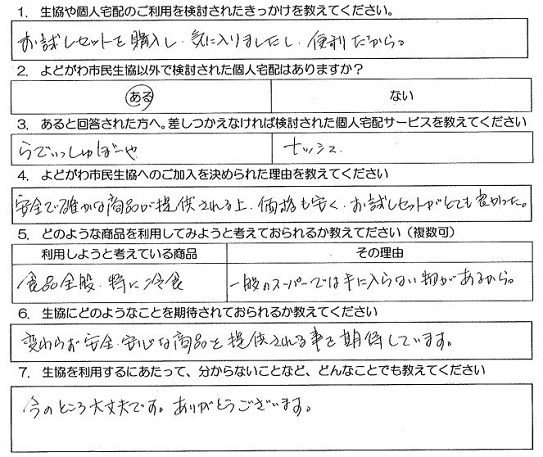 1. 生協や個人宅配のご利用を検討されたきっかけを教えてください。
お試しセットを購入し、気に入りましたし、便利だから。
2. よどがわ市民生協以外で検討された個人宅配はありますか？
ある ない
3. あると回答された方へ。差しつかえなければ検討された個人宅配サービスを教えてください
らでぃっしゅぼーや ナッシュ
4. よどがわ市民生協へのご加入を決められた理由を教えてください
安全で確かな商品が提供される上、価格も安く、お試しセットがとても良かった。
5. どのような商品を利用してみようと考えておられるか教えてださい（複数可）
利用しようと考えている商品 その理由
食品全般、特に冷食 一般のスーパーでは手に入らない物があるから。
6. 生協にどのようなことを期待されておられるか教えてください
変わらず安全、安心な商品を提供される事を期待しています。
7. 生協を利用するにあたって、分からないことなど、どんなことでも教えてください
今のところ大丈夫です。ありがとうございます。